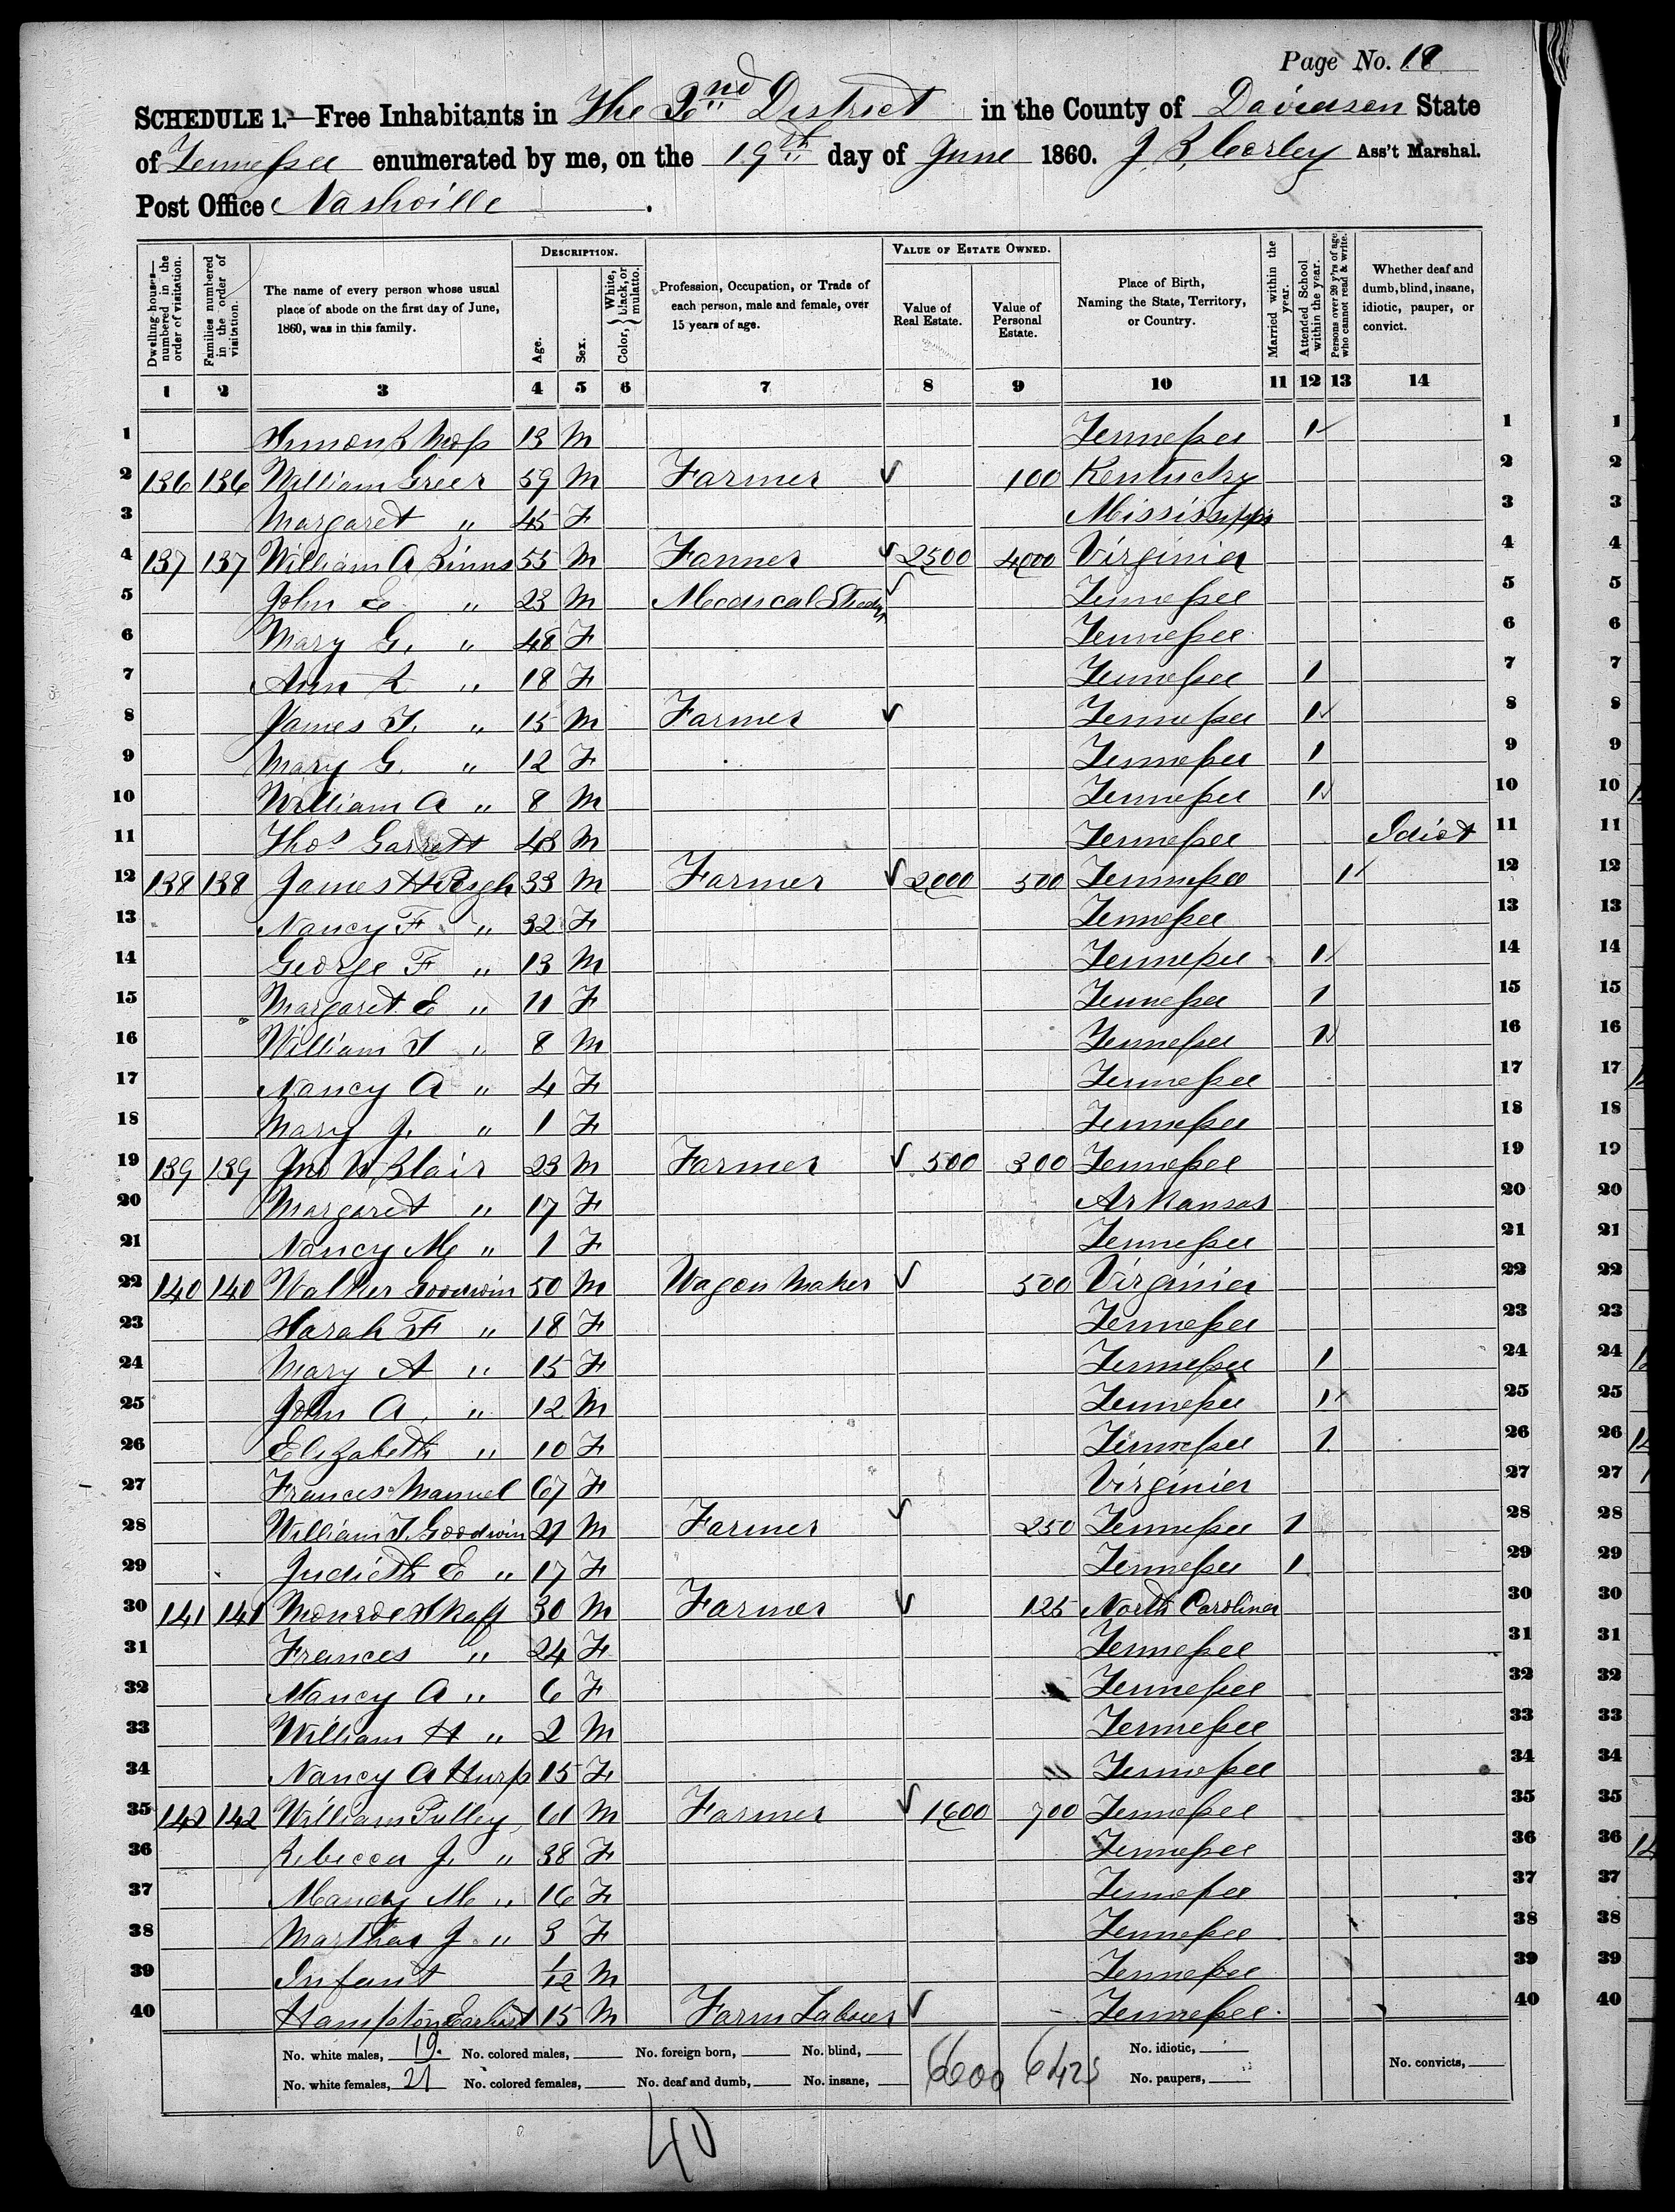 Page No. 18
SCHEDULE 1.—Free Inhabitants in The 2nd District in the County of Davidson State
of Tennessee enumerated by me, on the 19th day of June 1860. J. R. Corley Ass't Marshal.
Post Office Nashville.
Dwelling-houses—numbered in the order of visitation.
Families numbered in the order of visitation.
The name of every person whose usual place of abode on the first day of June, 1860, was in this family.
DESCRIPTION.
Age.
Sex.
Color, White, black, or mulatto.
Profession, Occupation, or Trade of each person, male and female, over 15 years of age.
VALUE OF ESTATE OWNED.
Value of Real Estate.
Value of Personal Estate.
Place of Birth, Naming the State, Territory, or Country.
Married within the year.
Attended School within the year.
Persons over 20 y'rs of age who cannot read & write.
Whether deaf and dumb, blind, insane, idiotic, pauper, or convict.
1 2 3 4 5 6 7 8 9 10 11 12 13 14
1 13 M Tennessee 1 1
2 136 136 William Greer 59 M Farmer 100 Kentucky 2
3 Margaret " 45 F Mississippi 3
4 137 137 William A Binns 55 M Farmer 2500 4000 Virginia 4
5 John E " 23 M Medical Student Tennessee 5
6 Mary G. " 48 F Tennessee 6
7 Ann R " 18 F Tennessee 1 7
8 James T. " 15 M Farmer Tennessee 1 8
9 Mary G. " 12 F Tennessee 1 9
10 William A " 8 M Tennessee 1 10
11 Thos Garrett 43 M Tennessee Idiot 11
12 138 138 James H 33 M Farmer 2000 500 Tennessee 1 12
13 Nancy F " 32 F Tennessee 13
14 George F " 13 M Tennessee 1 14
15 Margaret E " 11 F Tennessee 1 15
16 William T " 8 M Tennessee 1 16
17 Nancy A " 4 F Tennessee 17
18 Mary J. " 1 F Tennessee 18
19 139 139 Jno W Blair 23 M Farmer 500 300 Tennessee 19
20 Margaret " 17 F Arkansas 20
21 Nancy M " 1 F Tennessee 21
22 140 140 Walker Goodwin 50 M Wagon Maker 500 Virginia 22
23 Sarah F " 18 F Tennessee 23
24 Mary A " 15 F Tennessee 1 24
25 John A. " 12 M Tennessee 1 25
26 Elizabeth " 10 F Tennessee 1 26
27 Frances Manuel 67 F Virginia 27
28 William T. Goodwin 21 M Farmer 250 Tennessee 1 28
29 Judieth E " 17 F Tennessee 1 29
30 141 141 Monroe 30 M Farmer 125 North Carolina 30
31 Frances " 24 F Tennessee 31
32 Nancy A " 6 F Tennessee 32
33 William H " 2 M Tennessee 33
34 Nancy A 15 F Tennessee 34
35 142 142 William Pulley 61 M Farmer 1600 700 Tennessee 35
36 Rebecca J. " 38 F Tennessee 36
37 M " 16 F Tennessee 37
38 Martha J " 3 F Tennessee 38
39 Infant 1/12 M Tennessee 39
40 Hampton Earhart 15 M Farm Labourer Tennessee 40
No. white males, 19. No. colored males, No. foreign born, No. blind, 6600 6425 No. idiotic, No. convicts,
No. white females, 21 No. colored females, No. deaf and dumb, No. insane, No. paupers,
40